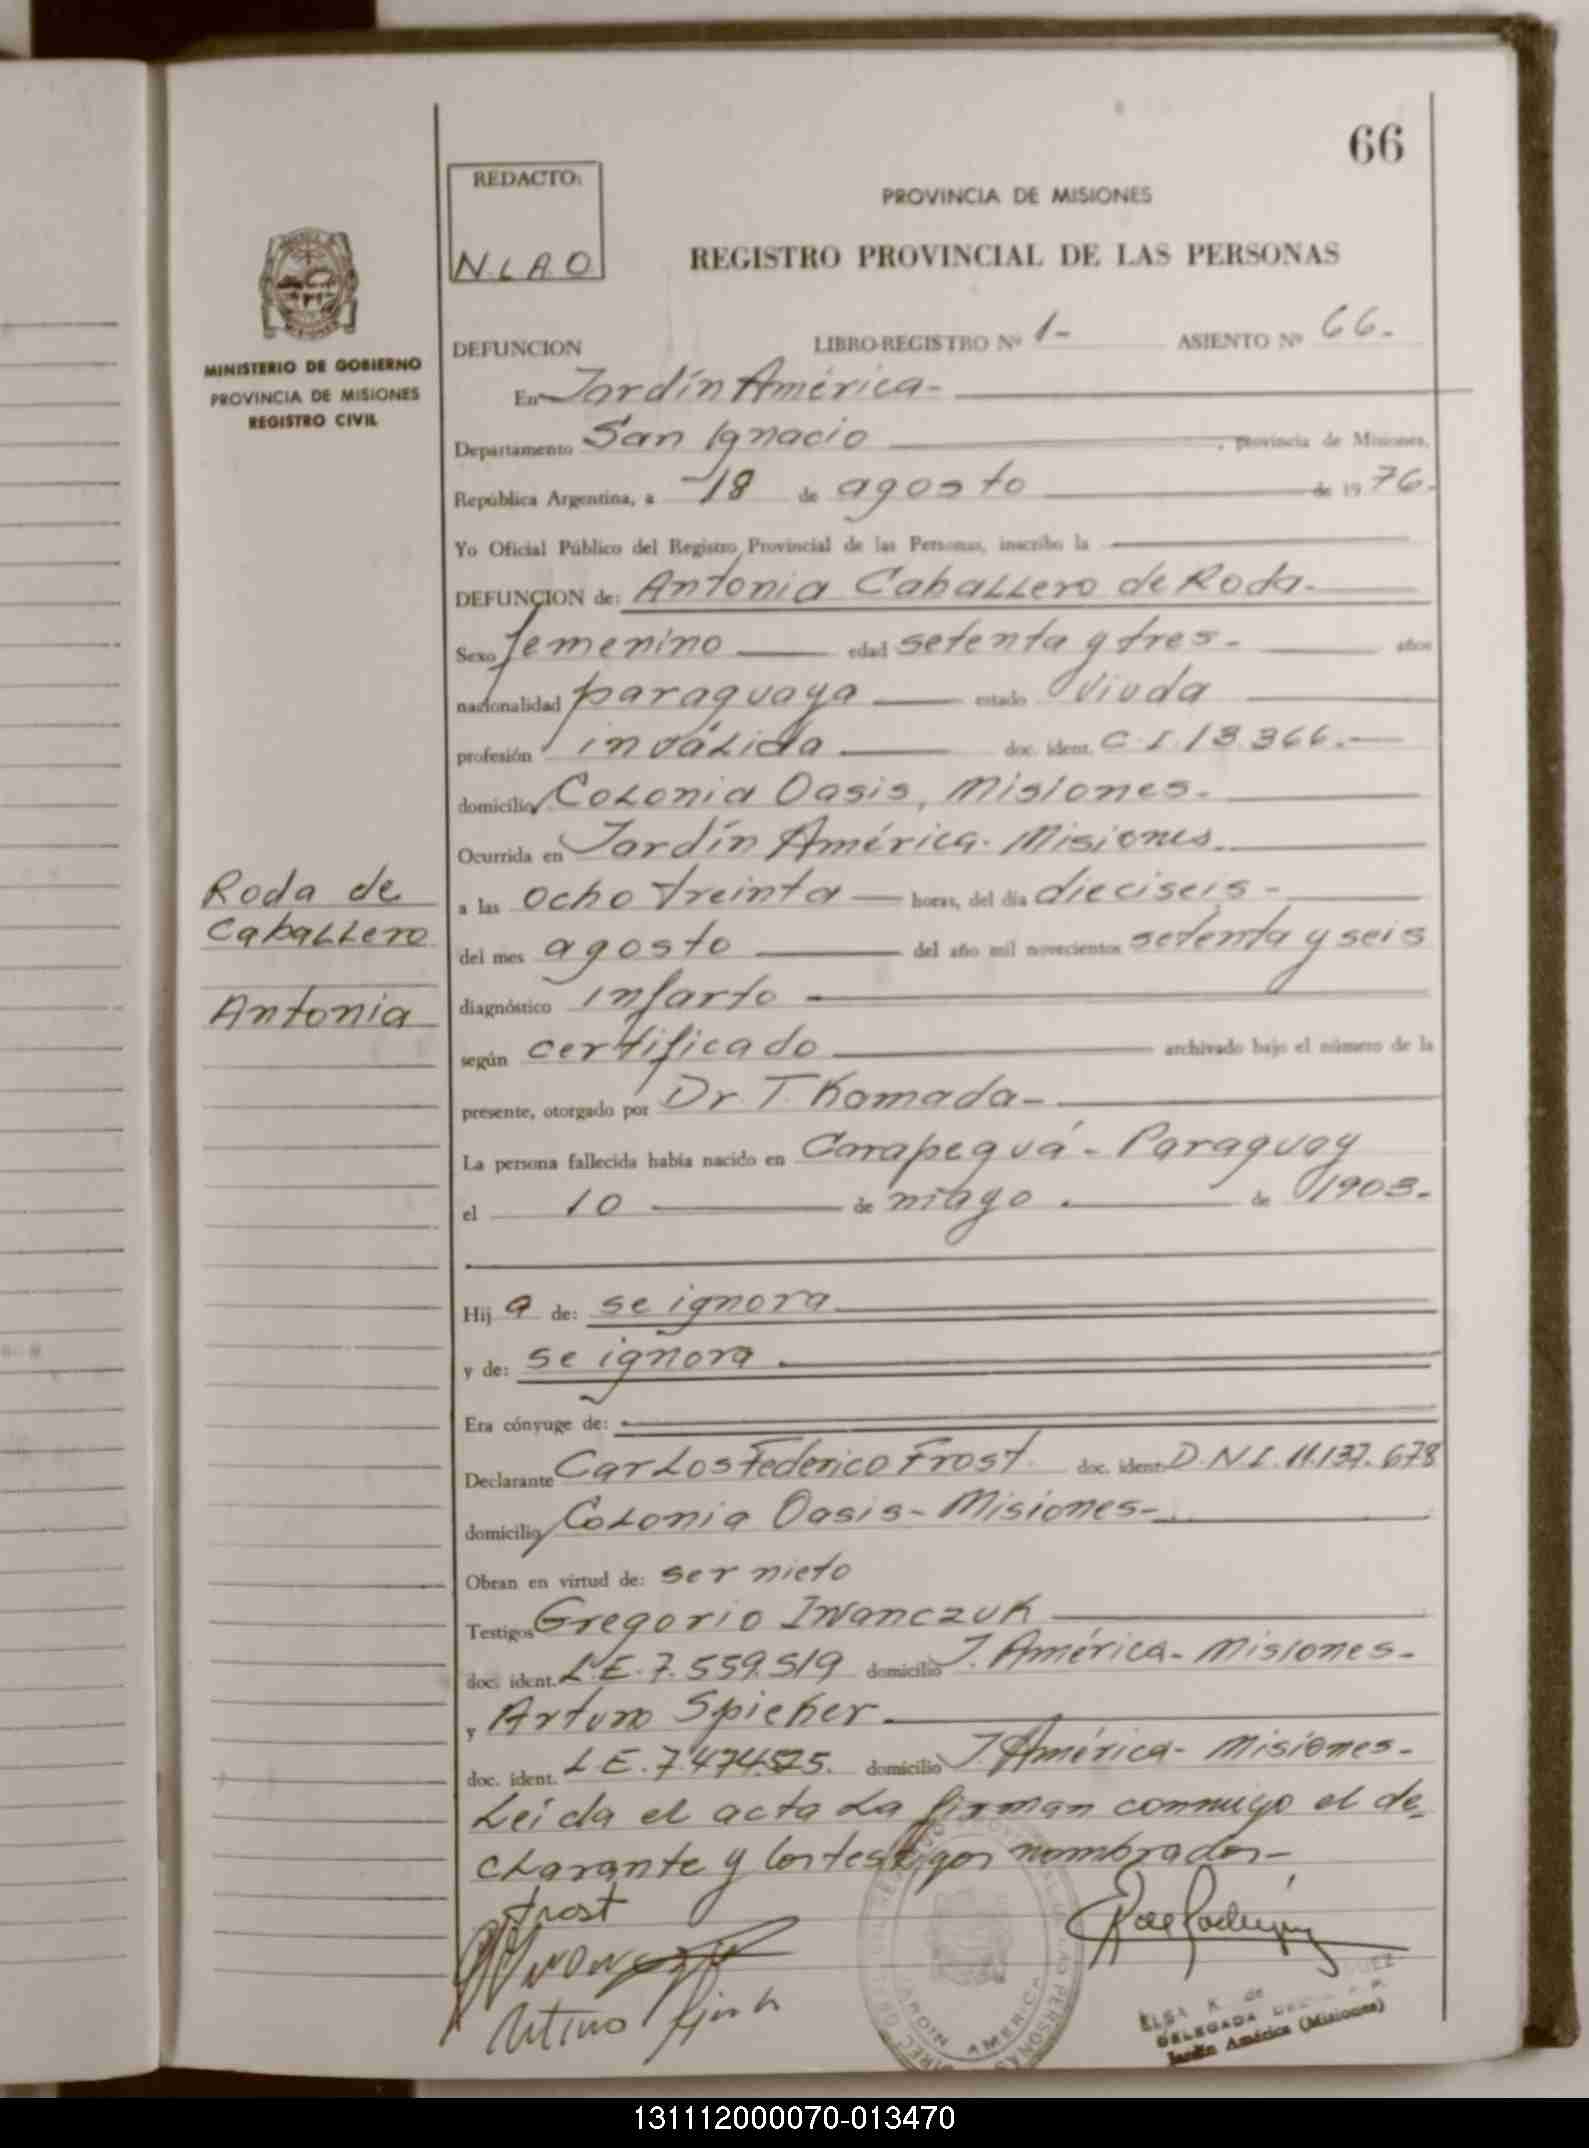 66
REDACTO:
N.L.A.O
PROVINCIA DE MISIONES
REGISTRO PROVINCIAL DE LAS PERSONAS
MINISTERIO DE GOBIERNO
PROVINCIA DE MISIONES
REGISTRO CIVIL
DEFUNCION LIBRO-REGISTRO Nº 1- ASIENTO Nº 66.
En Jardín América-
Departamento San Ignacio , provincia de Misiones,
República Argentina, a 18 de agosto de 1976.
Yo Oficial Público del Registro Provincial de las Personas, inscribo la
DEFUNCION de: Antonia Caballero de Roda.
Sexo femenino edad setenta y tres- años
nacionalidad paraguaya estado viuda
profesión inválida doc. ident. C.I.13.366.
domicilio Colonia Oasis, Misiones.
Ocurrida en Jardín América. Misiones.
Roda de
Caballero
Antonia
a las ocho treinta horas, del día dieciseis-
del mes agosto del año mil novecientos setenta y seis
diagnóstico infarto
según certificado archivado bajo el número de la
presente, otorgado por Dr. T. Komada-
La persona fallecida había nacido en Carapeguá- Paraguay
el 10 de mayo de 1903.
Hija de: se ignora
y de: se ignora
Era cónyuge de:
Declarante Carlos Federico Frost. doc. ident. D.N.I. 11.137.678
domicilio Colonia Oasis- Misiones-
Obran en virtud de: ser nieto
Testigos Gregorio Iwanczuk
doc. ident. L.E. 7.559.519 domicilio J. América- Misiones-
y Arturo Spieker.
doc. ident. L.E. 7.474.525. domicilio J. América- Misiones-
Leida el acta la firman conmigo el de-
clarante y los testigos nombrados-
Frost
JARDIN AMERICA
ELSA K. de
DELEGADA
Jardín América (Misiones)
131112000070-013470